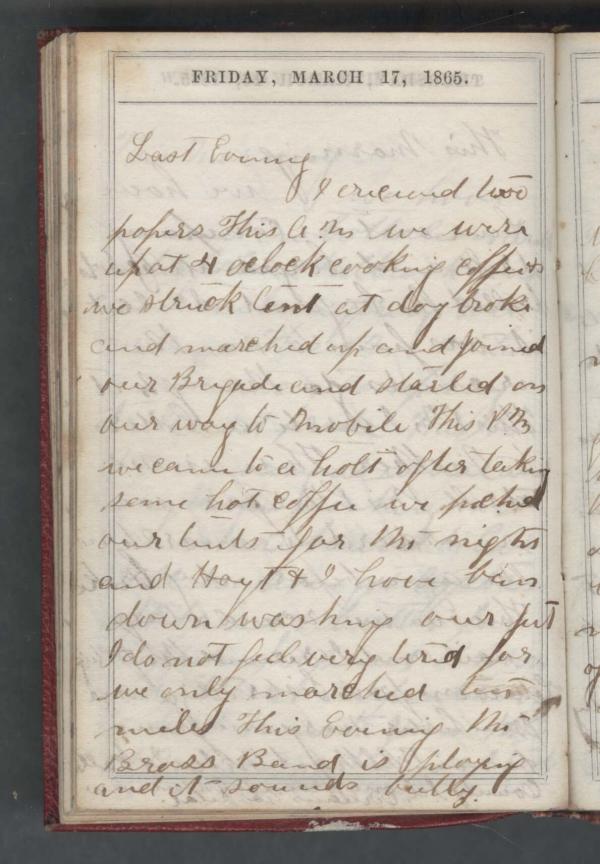 FRIDAY, MARCH 17, 1865.
Last Evening
I recieved two
papers This A.M. we were
up at 4 oclock cooking coffee &
we struck tent at day broke
and marched up and joined
our Brigade and started on
our way to Mobile. This P.M.
we came to a holt after taking
some hot coffee we pitched
our tents for the night
and Hoyt & I have been
down washing our feet
I do not feel very tired for
we only marched ten
miles This Evening the
Brass Band is playing
and it sounds bully.